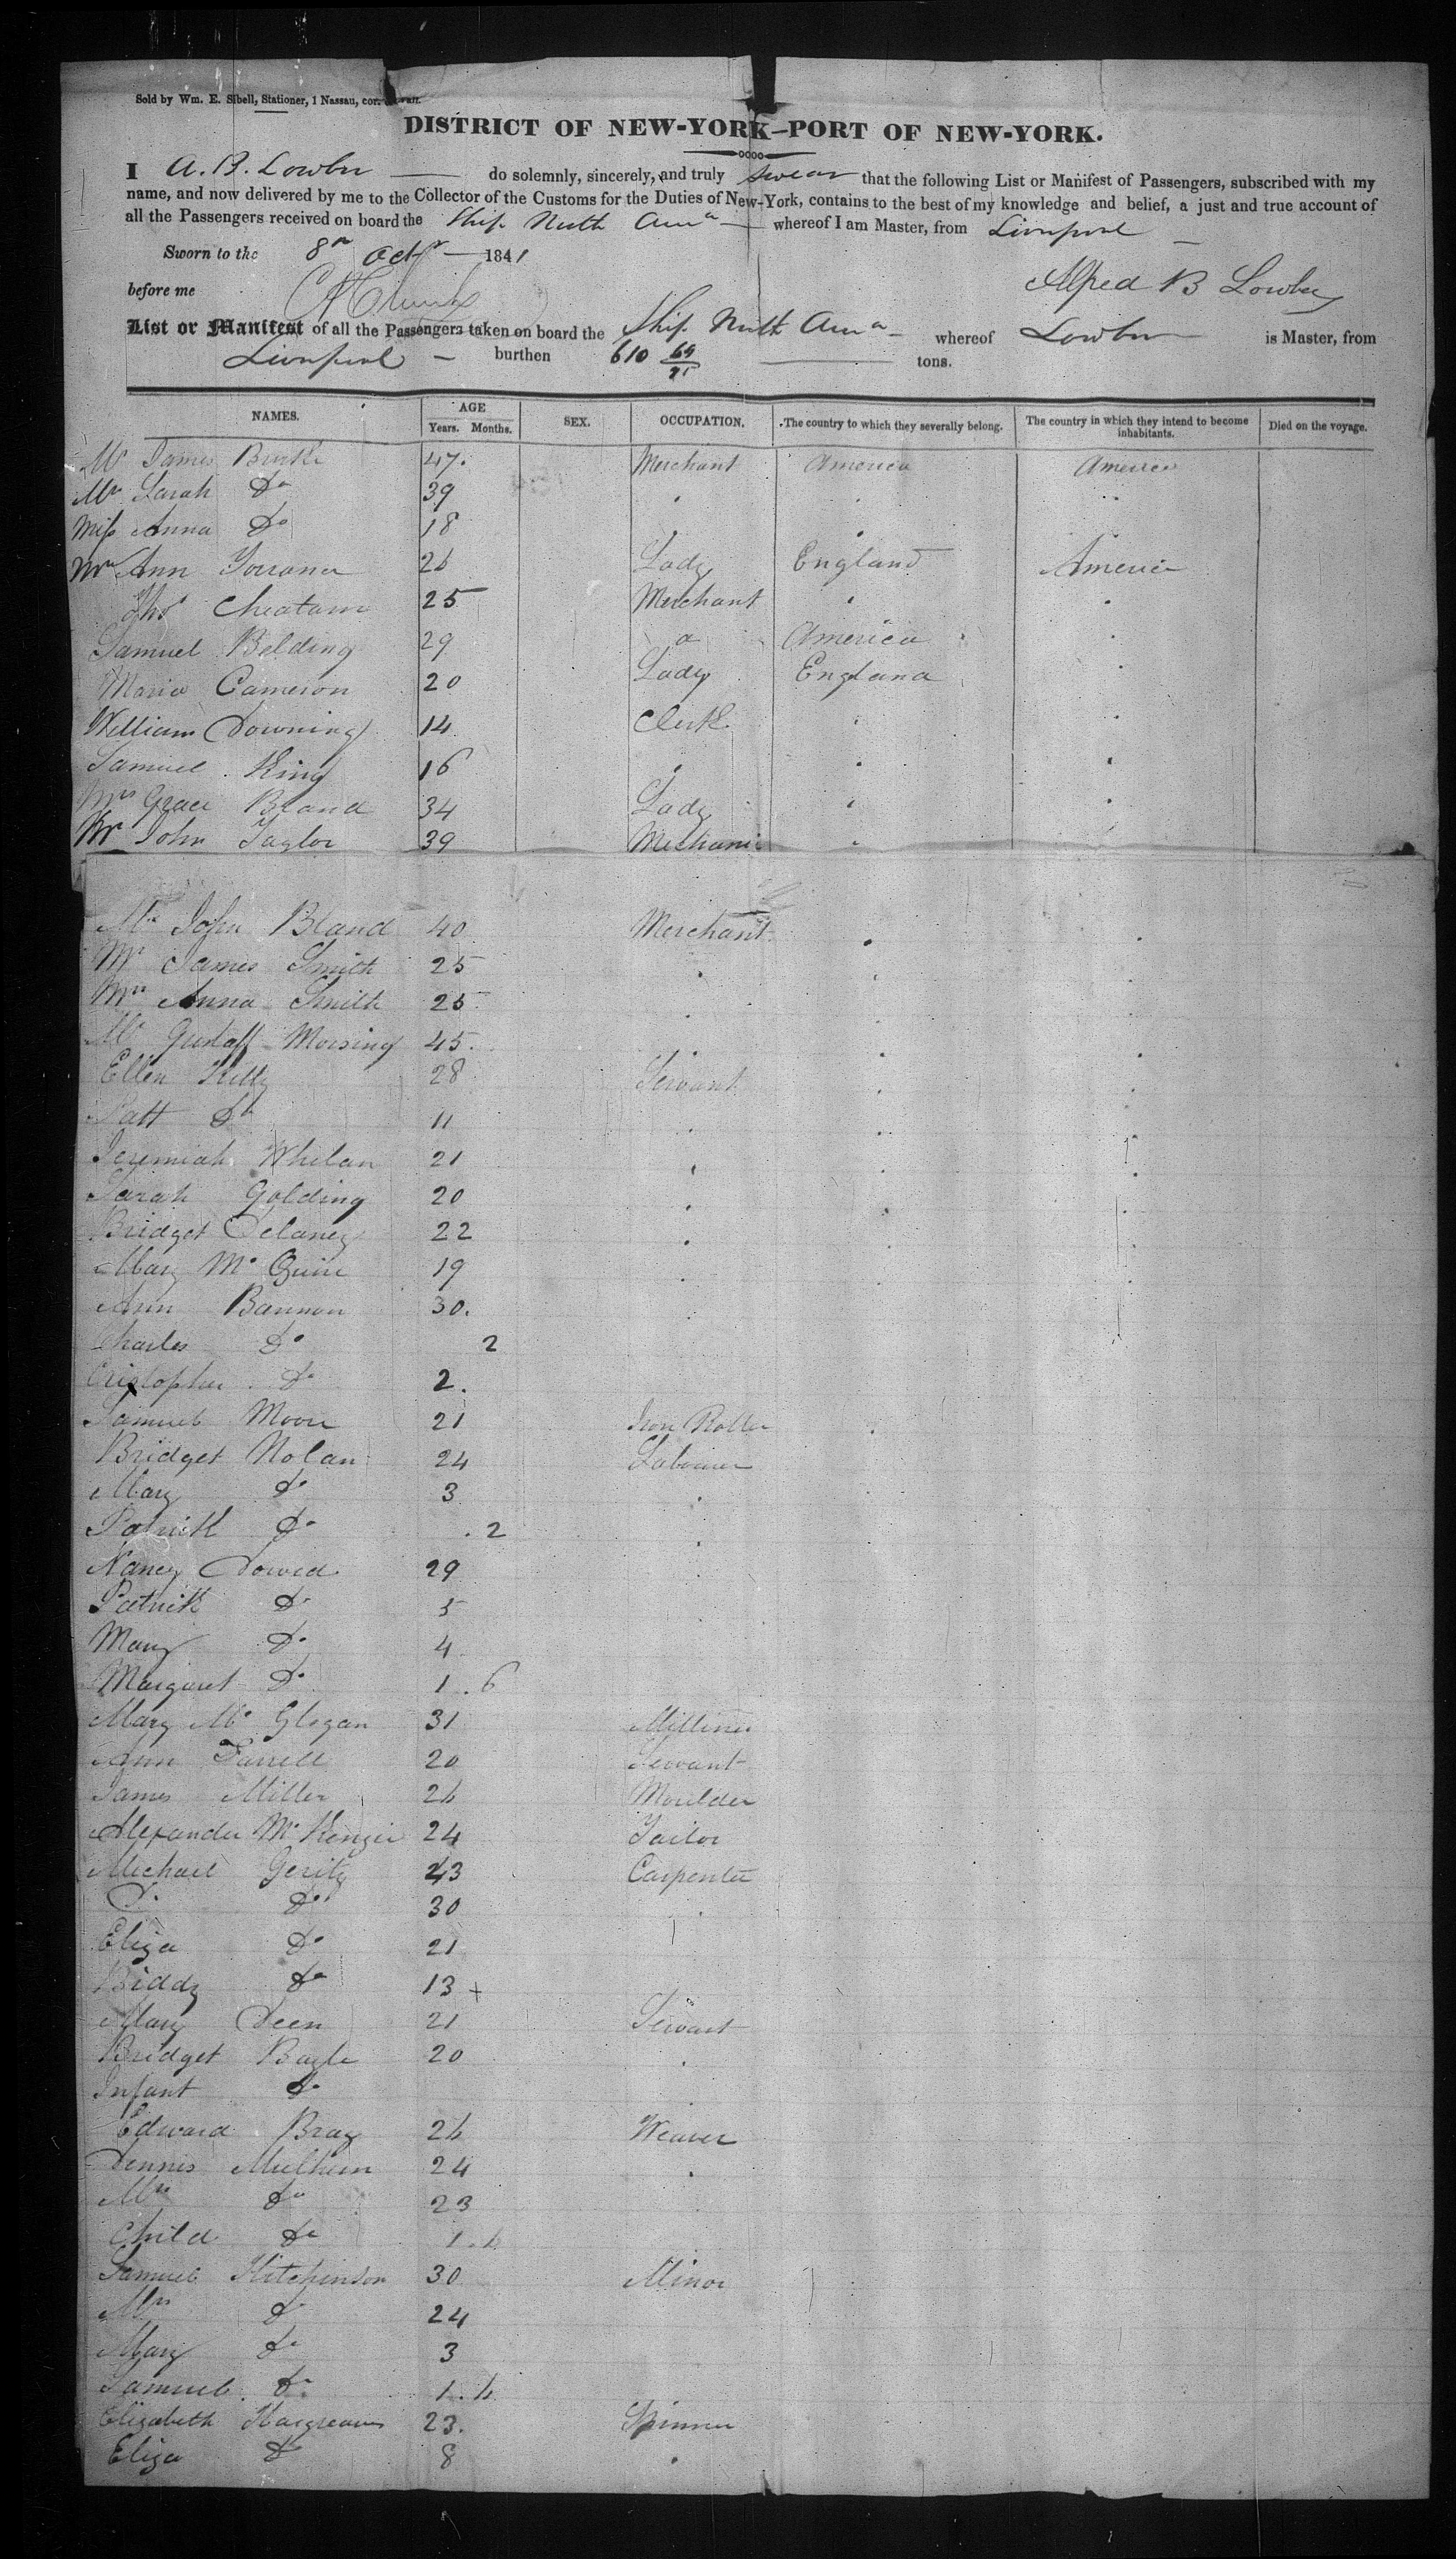 Sold by Wm. E. Sibell, Stationer, 1 Nassau, cor.
DISTRICT OF NEW-YORK—PORT OF NEW-YORK.
I A. B. Lowber do solemnly, sincerely, and truly swear that the following List or Manifest of Passengers, subscribed with my
name, and now delivered by me to the Collector of the Customs for the Duties of New-York, contains to the best of my knowledge and belief, a just and true account of
all the Passengers received on board the Ship North Ama whereof I am Master, from Liverpool
Sworn to the 8th Octr 1841
before me
Alfred B Lowber
List or Manifest of all the Passengers taken on board the Ship North Ama whereof Lowber is Master, from
Liverpool burthen 610 tons.
NAMES. AGE SEX. OCCUPATION. The country to which they severally belong. The country in which they intend to become inhabitants. Died on the voyage.
Years. Months.
Mr James Burke 47. Merchant America America
Mrs Sarah Do 39
Miss Anna Do 18
Mrs Ann 26 Lady England America
Thos Cheatam 25 Merchant
Samuel Belding 29 America
Maria Cameron 20 Lady England
William Downing 14 Clerk
Samuel King 16
Mrs Grace Bland 34 Lady
Mr John Taylor 39 Mechanic
Mr John Bland 40 Merchant
Mr James Smith 25
Mrs Anna Smith 25
Mr Gustaff Morsing 45.
Ellen Kelly 28 Servant
Patt Do 11
Jeremiah Whelan 21
Sarah Golding 20
Bridget Delaney 22
Mary Mc Quin 19
Ann Bannon 30.
Charles Do 2
Cristopher Do 2.
Samuel Moore 21 Iron Roller
Bridget Nolan 24 Labourer
Mary Do 3
Patrick Do 2
Nancy Dowed 29
Patrick Do 5
Mary Do 4
Margaret Do 1. 6
Mary Mc Glogan 31 Milliner
Ann Farrell 20 Servant
James Miller 26 Moulder
Alexander Mc Kenzie 24 Tailor
Michael Gerity 23 Carpenter
Do Do 30
Eliza Do 21
Biddy Do 13 +
Mary Deen 21 Servant
Bridget Bayle 20
Infant Do
Edward Bray 26 Weaver
Dennis Mulhern 24
Mrs Do 23
Child Do 1.6
Samuel Hitchinson 30 Minor
Mrs Do 24
Mary Do 3
Samuel Do 1.6
Elizabeth Hargreaves 23. Spinner
Eliza Do 8